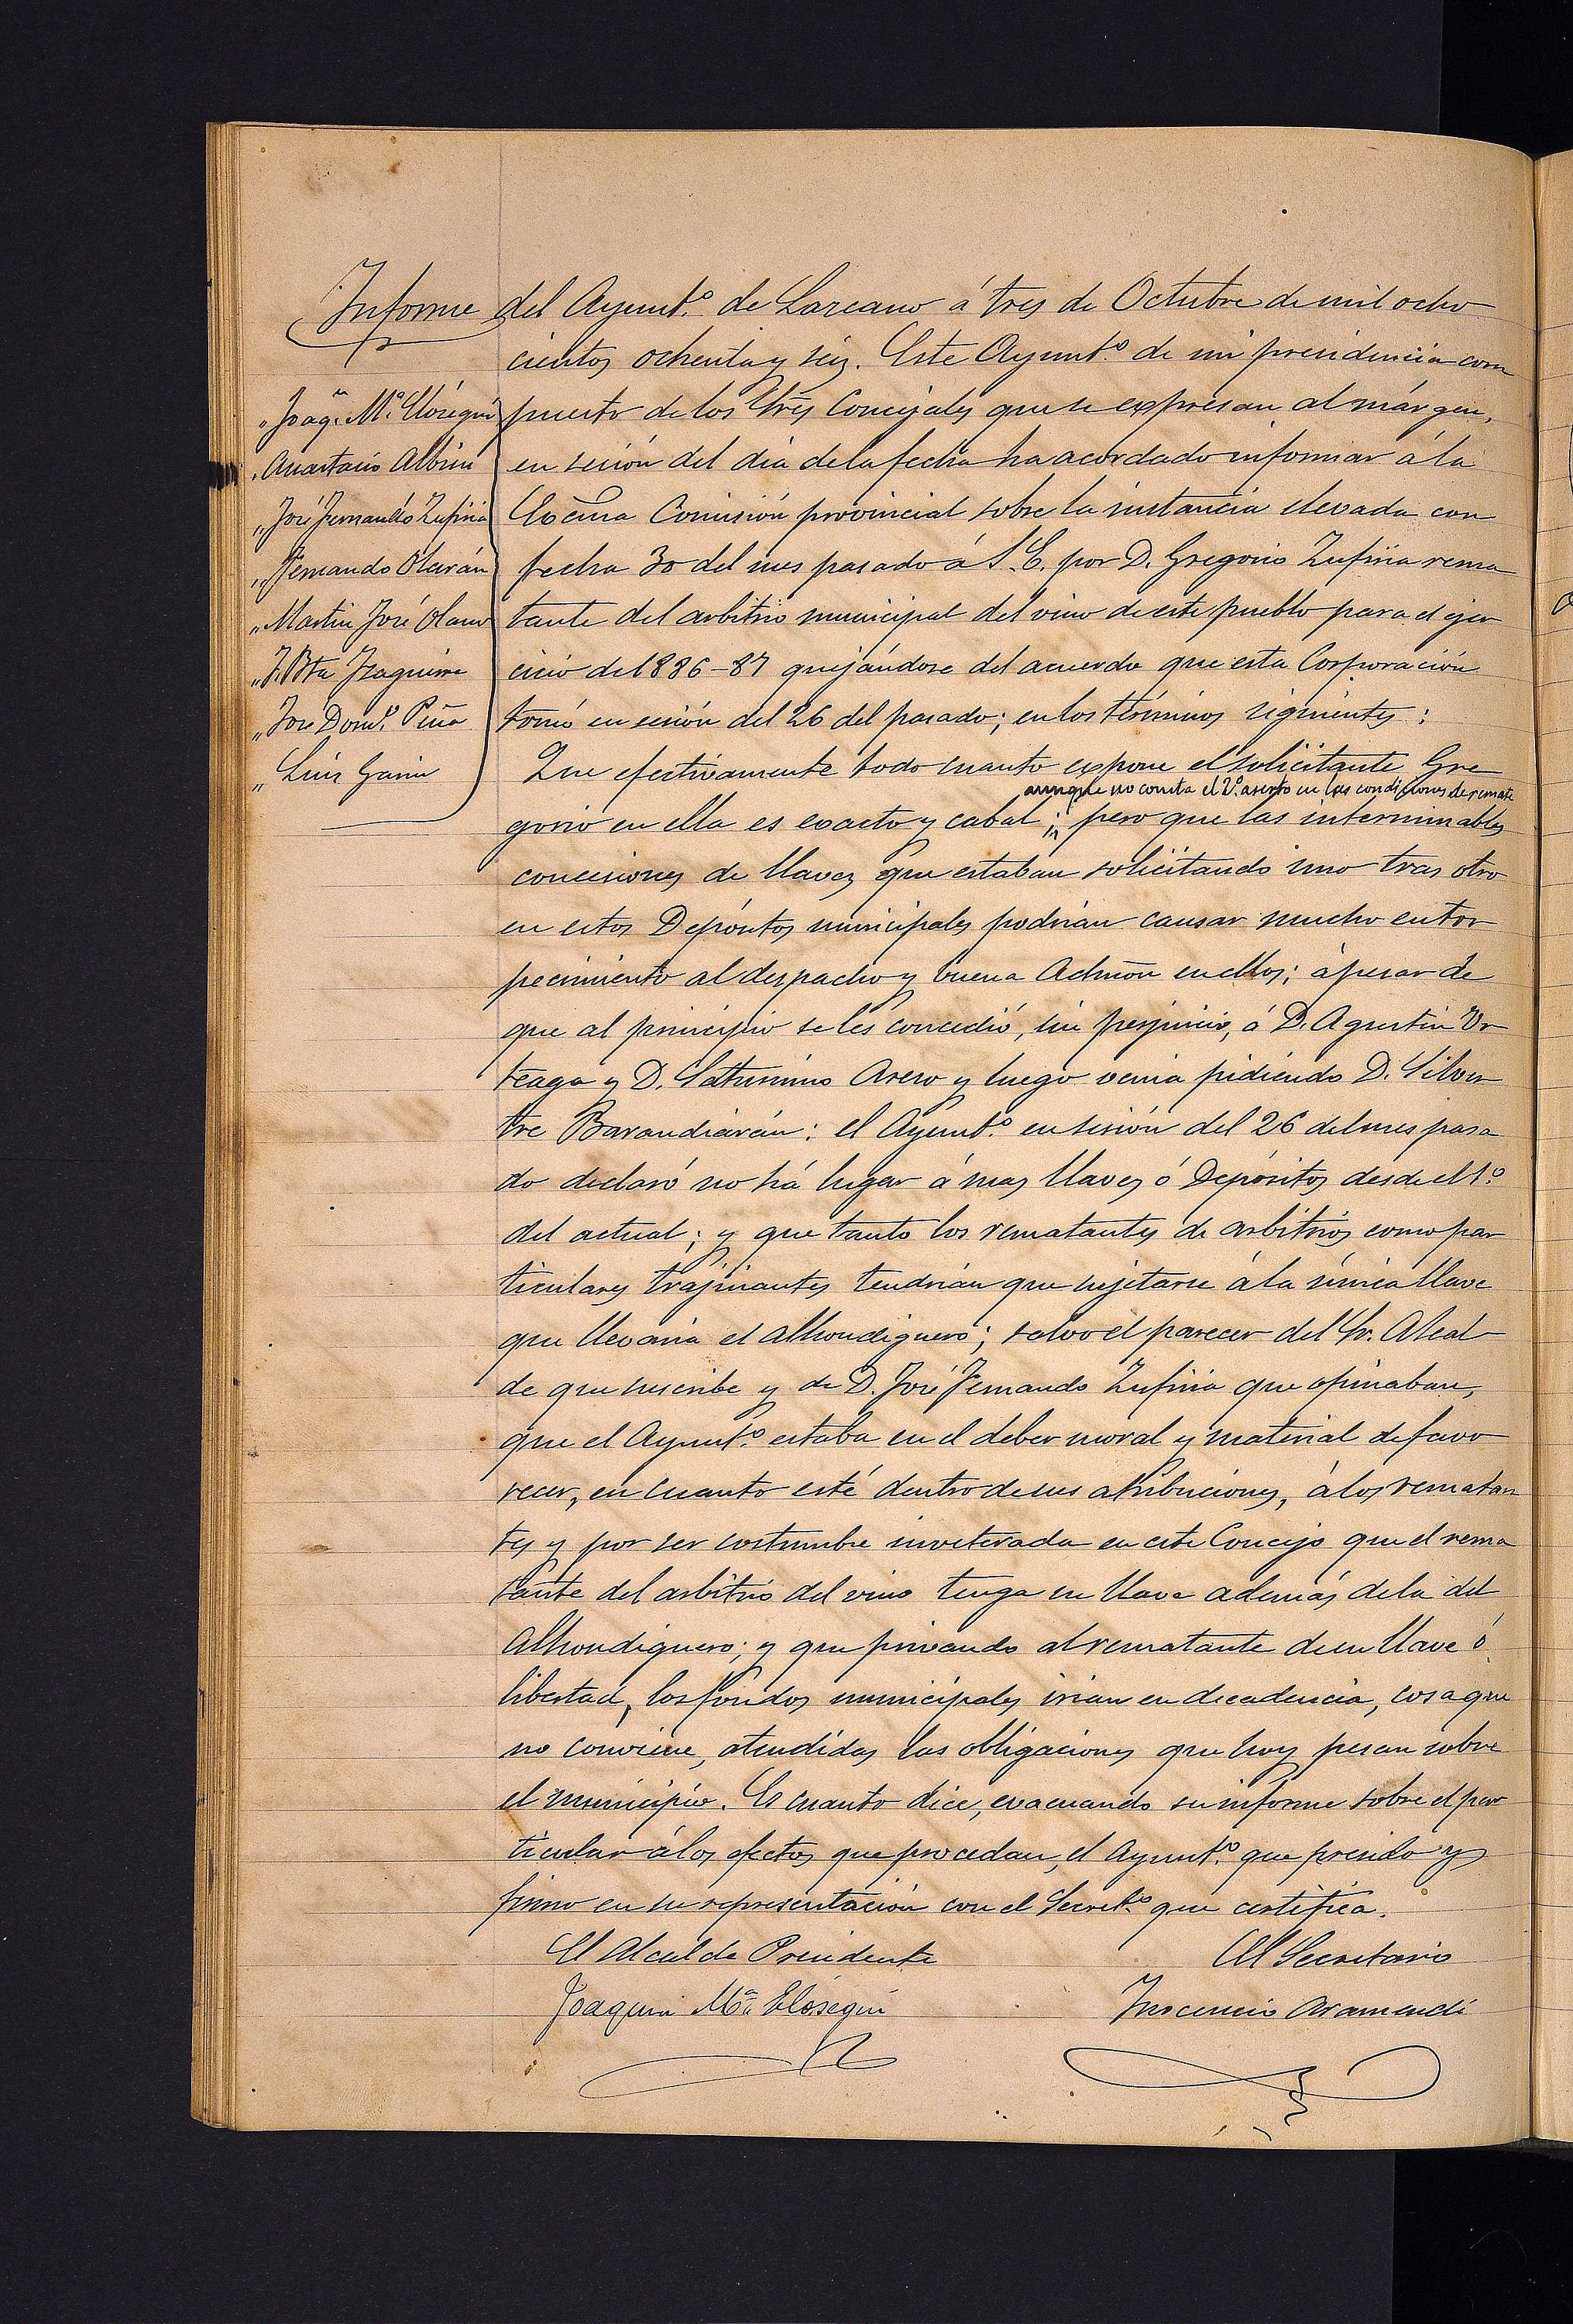 Informe del Ayunt.º de Lazcano á tres de Octubre de mil ocho
cientos ochenta y seis. Este Ayunt.º de mi presidencia com
puesto de los Sres Concejales que se expresan al márgen,
en sesión del dia de la fecha ha acordado informar á la
Excma Comisión provincial sobre la instancia elevada con
fecha 30 del mes pasado á S. E. por D. Gregorio Zufiria rema
tante del arbitrio municipal del vino de este pueblo para el ejer
cicio de 1886-87 quejándose del acuerdo que esta Corporación
tomó en sesión del 26 del pasado; en los términos siguientes:
Que efectivamente todo cuanto expone el solicitante Gre
aunque no consta el 2º aserto en las condiciones de remate
gorio en ella es exacto y cabal; pero que las interminables
concesiones de llaves que estaban solicitando uno tras otro
en estos Depósitos municipales podrian causar mucho entor
pecimiento al despacho y buena Admon en ellos; á pesar de
que al principio se les concedió, sin perjuicio, á D. Agustin Ur
teaga y D. Saturnino Asero y luego venia pidiendo D. Silves
tre Barandiarán: el Ayunt.º en sesión del 26 del mes pasa
do declaró no há lugar á mas llaves ó Depósitos desde el 1º
del actual; y que tanto los rematantes de arbitrios como par
ticulares trajinantes tendrian que sujetarse á la única llave
que llevaria el alhondiguero; salvo el parecer del Sr. Alcal
de que suscribe y de D. José Fernando Zufiria que opinaban,
que el Ayunt.º estaba en el deber moral y material de favo
recer, en cuanto esté dentro de sus atribuciones, á los rematan
tes y por ser costumbre inveterada en este Concejo que el rema
tante del arbitrio del vino tenga su llave además de la del
Alhondiguero; y que privando al rematante de su llave ó
libertad, los fondos municipales irian en decadencia, cosa que
no conviene, atendidas las obligaciones que hoy pesan sobre
el municipio. Es cuanto dice, evacuando su informe sobre el par
ticular á los efectos que procedan, el Ayunt.º que presido y
firmo en su representación con el Secret.º que certifica.
El Alcalde Presidente
El Secretario
Joaquin Mª Elósegui
Inocencio Aramendi
„ Joaqn. Mª Elósegui
„ Anastasio Albisu
„ José Fernando Zufiria
„ Fernando Olarán
„ Martin José Olano
„ J. Bta Izaguirre
„ José Domº Peña
„ Luis Garin